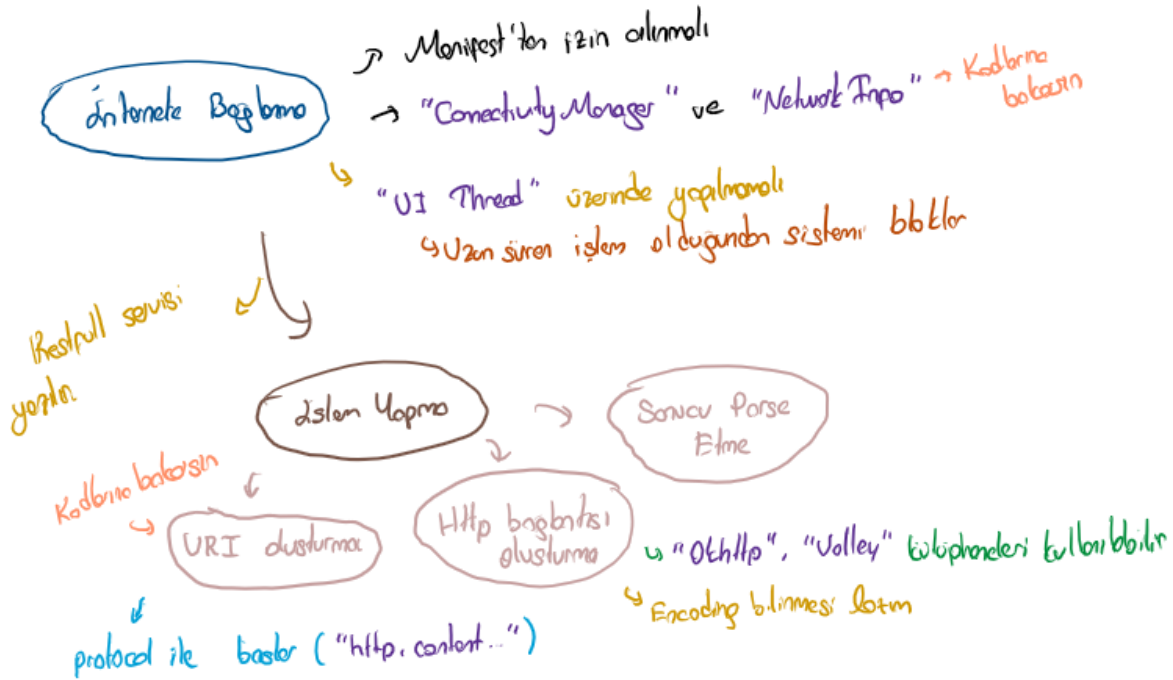 Manifest'ten izin alınmalı
İnternete Bağlanma
"Conectivity Manager" ve "Network Info"
Kodlarına
bakarsın
"UI Thread" üzerinde yapılmamalı
Uzun süren işlem olduğundan sistemi bloklar
Restfull servisi
yazılır
İşlem Yapma
Sonucu Parse
Etme
Kodlarına bakarsın
URI oluşturma
Http bağlantısı
oluşturma
"OkHttp", "Volley" kütüphaneleri kullanılabilir
Encoding bilinmesi lazım
protocol ile başlar ("http, content...")